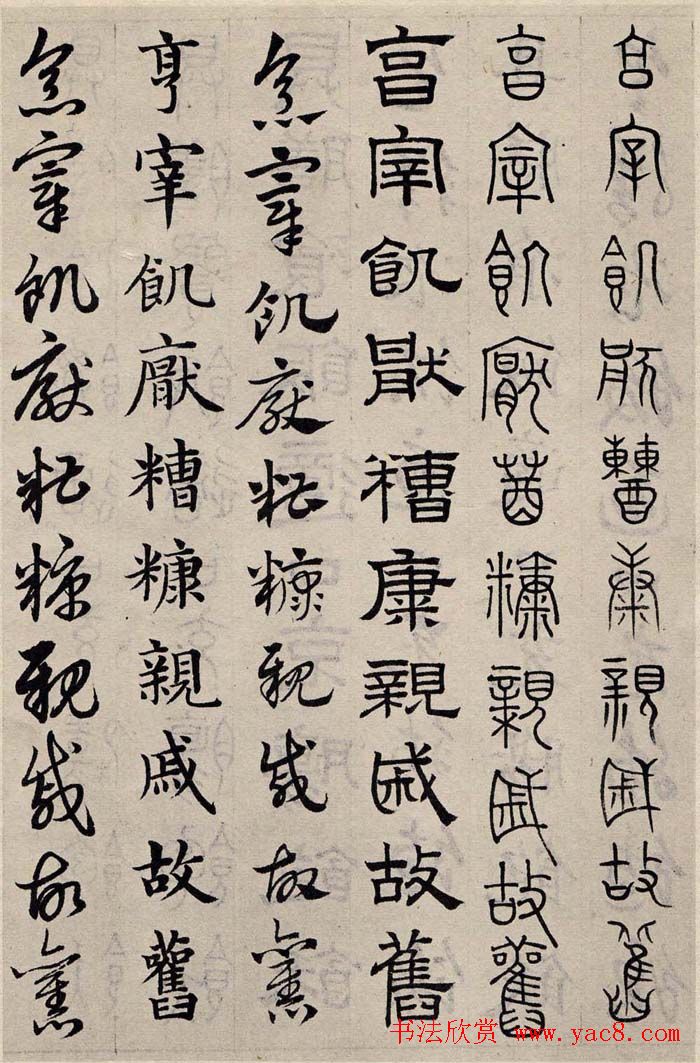 亯宰飢厭糟康親戚故舊
亯宰飢厭糟糠親戚故舊
亯宰飢猒糟康親戚故舊
烹宰飢厭糟糠親戚故舊
亨宰飢厭糟糠親戚故舊
烹宰飢厭糟糠親戚故舊
书法欣赏 www.yac8.com